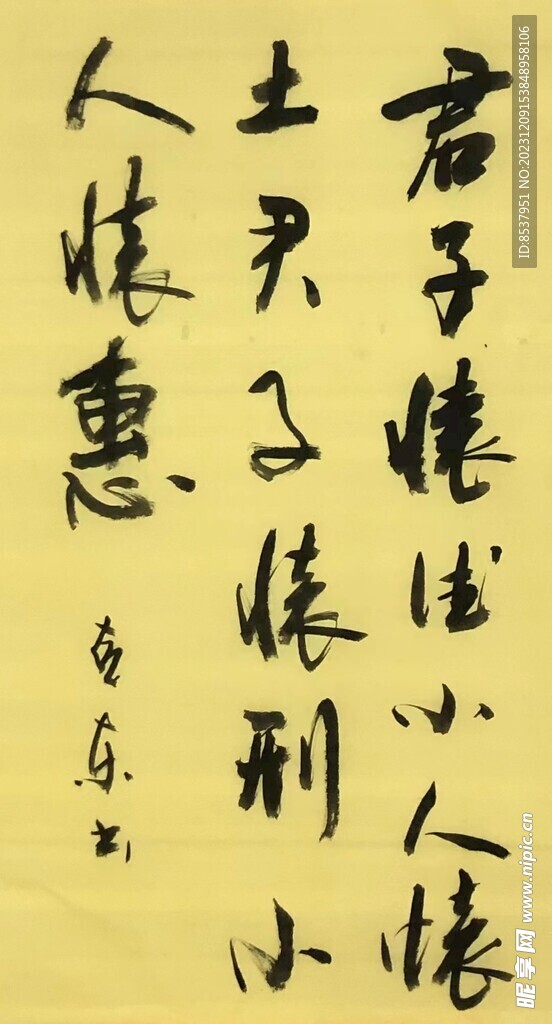 君子懷德小人懷
土君子懷刑小
人懷惠
東书
ID:8537951 NO:20231209153848958106
昵享网 www.nipic.cn